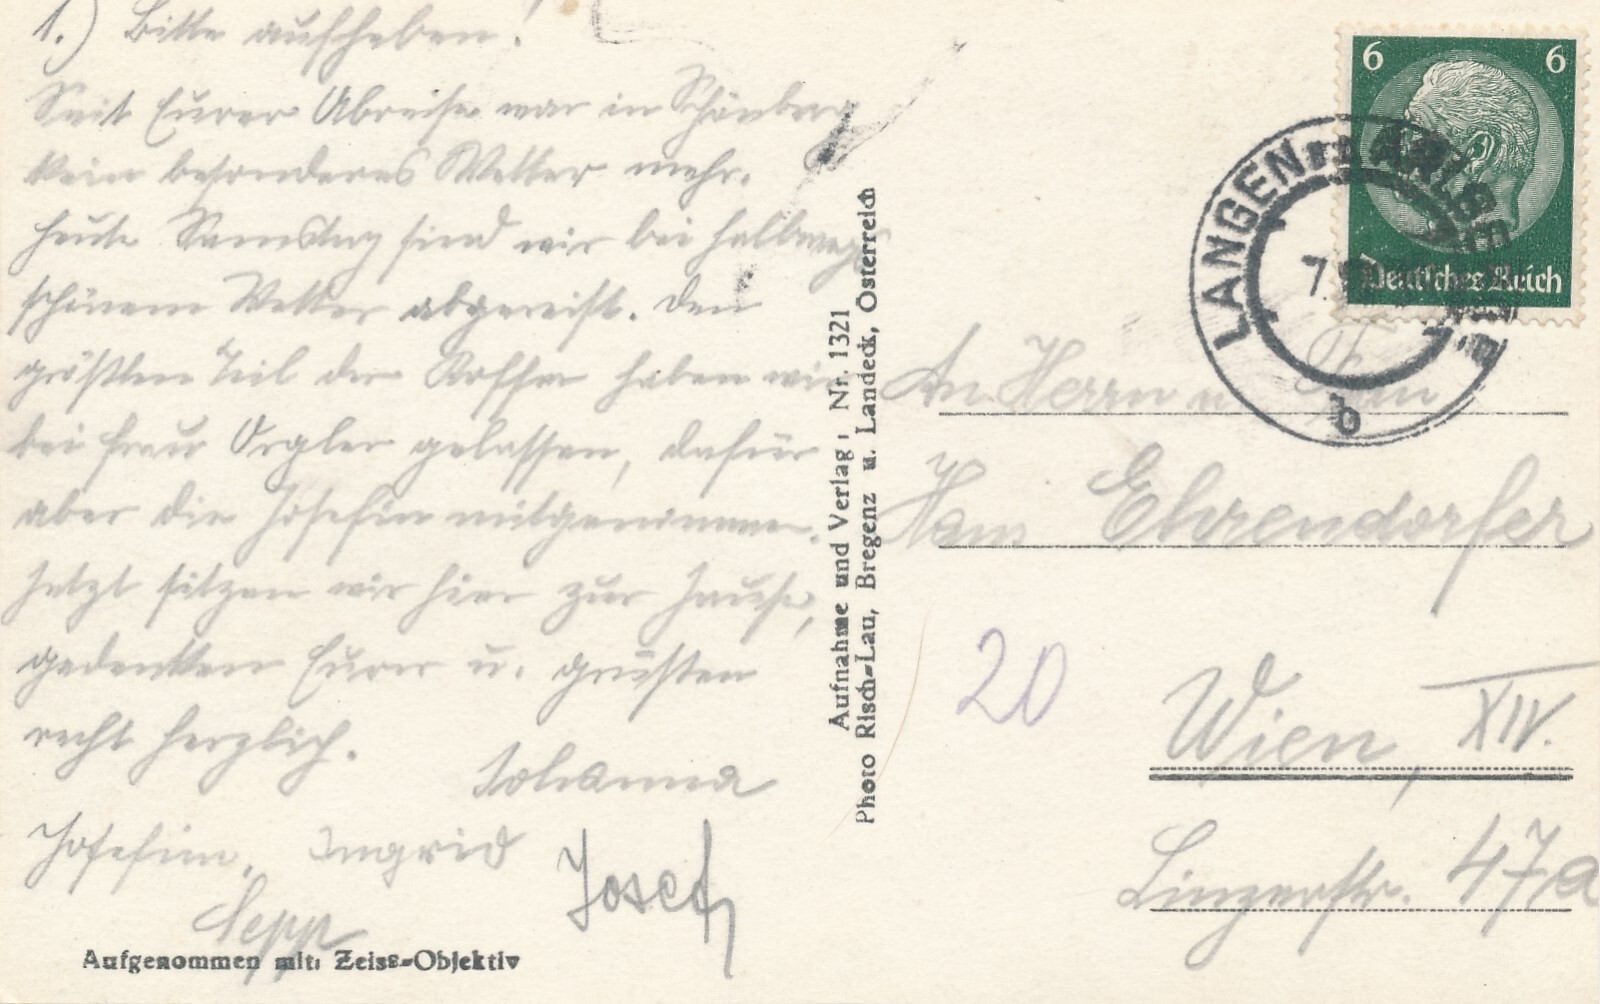 1.) Bitte aufheben!
Seit Eurer Abreise war in Schönberg
kein besonderes Wetter mehr.
Heute Samstag sind wir bei halbwegs
schönem Wetter abgereist. Den
größten Teil der Koffer haben wir
bei Frau Orgler gelassen, dafür
aber die Josefin mitgenommen.
Jetzt sitzen wir hier zur Jause,
gedenken Eurer u. grüßen
recht herzlich.
Johanna
Josefine, Ingrid
Josef
Sepp
Aufgenommen mit: Zeiss-Objektiv
Aufnahme und Verlag: Nr. 1321
Photo Risch-Lau, Bregenz u. Landeck, Österreich
6 6
Deutsches Reich
LANGEN a. ARLBERG
7.
b
An Herrn u.
Ehrendorfer
20
Wien, XIV.
Linzerstr. 47a